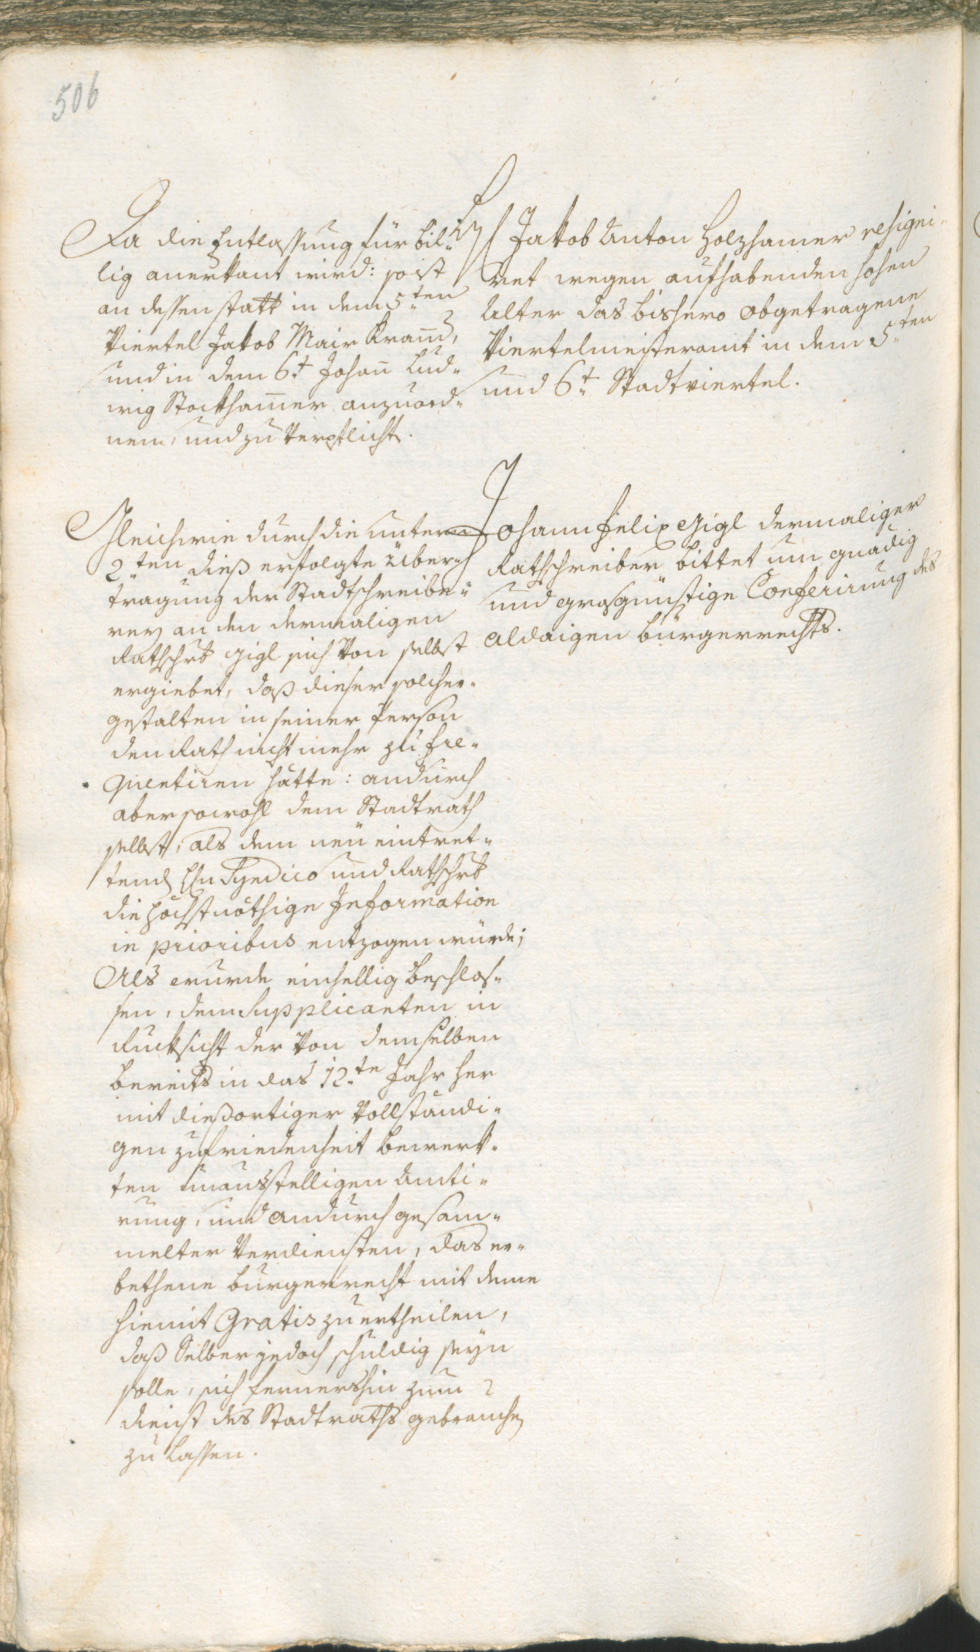 506
Da die Entlassung für bil-
lig anerkant wird: so ist
an dessen statt in dem 5ten
Viertel Jakob Mair Kram̄,
und in dem 6t Johan̄ Lud-
wig Stockham̄er anzuord-
nen, und zu Verpflicht.
Jakob Anton Holzhamer resigni-
ret wegen aufhabenden hohen
Alter das bishero obgetragene
Viertelmeisteramt in dem 5ten
und 6t Stadtviertel.
Gleichwie durch die unterm
2ten dieß erfolgte über-
tragung der Stadtschreibe-
rey an den dermaligen
Rathschrb Gigl sich Von selbst
ergiebet, daß dieser solcher-
gestalten in seiner Person
den Rath nicht mehr zu fre-
quentiren hätte: andurch
aber sowohl dem Stadtrath
selbst, als dem neu eintret-
tend Hn Syndico und Rathschrb
die höchstnöthige Information
in prioribus entzogen würde;
Als wurde einhellig beschlos-
sen, dem Supplicanten in
Rucksicht der Von demselben
bereits in das 12te Jahr her
mit dießortiger Vollständi-
gen zufriedenheit bewerk-
ten unausstelligen Amti-
rung, und andurch gesam-
melter Verdiensten, das er-
bethene burgerrecht mit deme
hiemit Gratis zu ertheilen,
daß Selber jedoch schuldig seyn
solle, sich fernershin zum
dienst des Stadtraths gebrauchen
zu lassen.
Johann Felix Gigl dermaliger
Rathschreiber bittet um gnädig
und grosgünstige Conferirung des
aldaigen bürgerrechts.